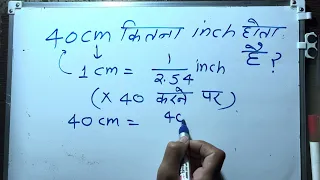 40cm कितना inch होता है ?
1cm = 1/2.54 inch
(× 40 करने पर)
40cm = 40